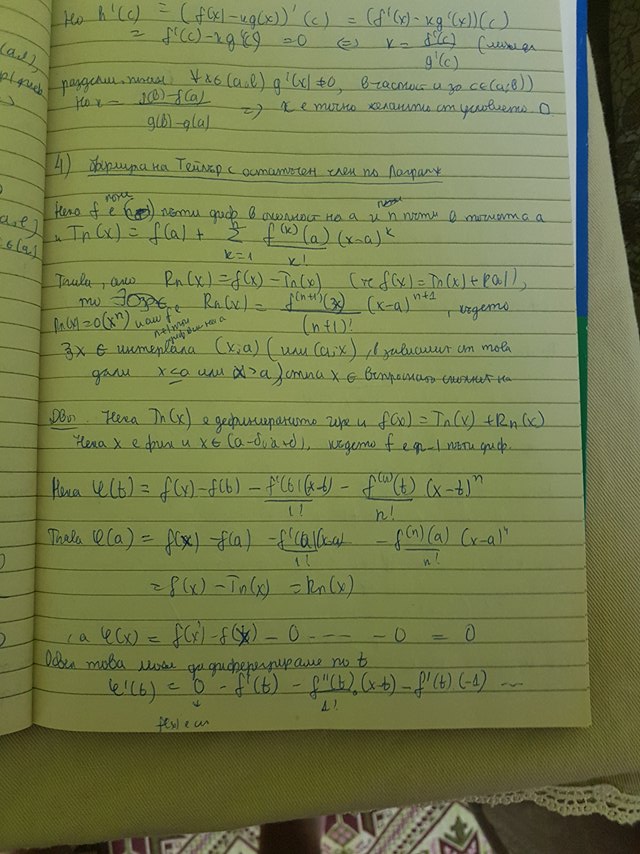 Но h'(c) = (f(x)-кg(x))'(c) = (f'(x)-кg'(x))(c)
= f'(c)-кg'(c) = 0 <=> к = f'(c)/g'(c) (може да
разделим, понеже ∀x∈(a,b) g'(x)≠0, в частност и за c∈(a,b))
Но к = f(b)-f(a)/g(b)-g(a) => к е точно желаното от условието □
4) Формула на Тейлър с остатъчен член по Лагранж
Нека f е пъти диф в околност на a и n пъти в точката a
и Tn(x) = f(a) + Σ k=1 f^(k)(a)/k! (x-a)^k
Тогава, ако Rn(x) = f(x)-Tn(x) (те f(x) = Tn(x)+R(x)),
то Rn(x) = f^(n+1)(ξ)/(n+1)! (x-a)^n+1, където
Rn(x)=o(x^n) или f е
∈ интервала (x;a) (или (a;x), в зависимост от това
дали x≤a или x>a) стига x ∈ въпросната околност на
Дво. Нека Tn(x) е дефинирано горе и f(x) = Tn(x) + Rn(x)
Нека x е фикс и x∈(a-δ, a+δ), където f е n-1 пъти диф.
Нека φ(t) = f(x)-f(t) - f'(t)(x-t)/1! - f^(n)(t)/n! (x-t)^n
Тогава φ(a) = f(x)-f(a) - f'(a)(x-a)/1! - f^(n)(a)/n! (x-a)^n
= f(x) - Tn(x) = Rn(x)
, а φ(x) = f(x)-f(x) - 0 --- - 0 = 0
Освен това можем да диференцираме по t
φ'(t) = 0 - f'(t) - f''(t)/1! . (x-t) - f'(t)(-1) ---
f(x) е